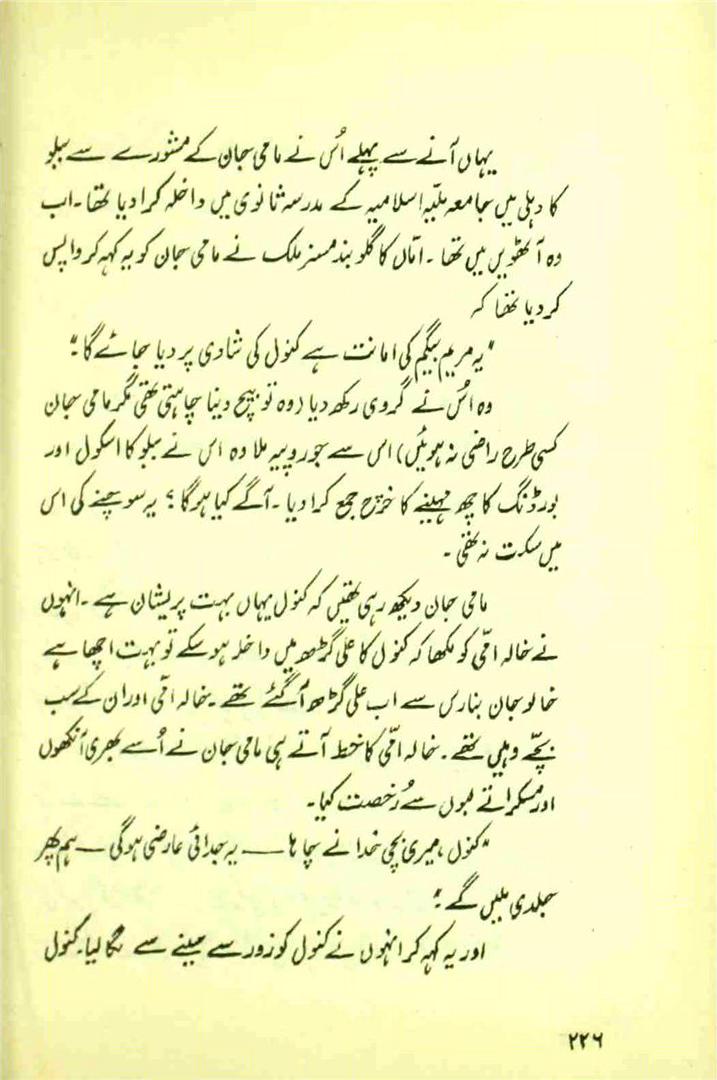 یہاں آنے سے پہلے اُس نے مامی جان کے مشورے سے ببلو
کا دہلی میں جامعہ ملیہ اسلامیہ کے مدرسہ ثانوی میں داخلہ کرا دیا تھا۔ اب
وہ آٹھویں میں تھا۔ امّاں کا گلوبند مسز ملک نے مامی جان کو یہ کہہ کر واپس
کر دیا تھا کہ
"یہ مریم بیگم کی امانت ہے کنول کی شادی پر دیا جائے گا۔"
وہ اُس نے گروی رکھ دیا (وہ تو بیچ دینا چاہتی تھی مگر مامی جان
کسی طرح راضی نہ ہوئیں) اس سے جو روپیہ ملا وہ اس نے ببلو کا اسکول اور
بورڈنگ کا چھ مہینے کا خرچ جمع کرا دیا۔ آگے کیا ہوگا؟ یہ سوچنے کی اس
میں سکت نہ تھی۔
مامی جان دیکھ رہی تھیں کہ کنول یہاں بہت پریشان ہے۔ انہوں
نے خالہ امّی کو لکھا کہ کنول کا علی گڑھ میں داخلہ ہو سکے تو بہت اچھا ہے
خالو جان بنارس سے اب علی گڑھ آ گئے تھے۔ خالہ امّی اور ان کے سب
بچّے وہیں تھے۔ خالہ امّی کا خط آتے ہی مامی جان نے اُسے بھری آنکھوں
اور مسکراتے لبوں سے رُخصت کیا۔
"کنول، میری بچی خدا نے چاہا —— یہ جدائی عارضی ہوگی — ہم پھر
جلدی ملیں گے۔"
اور یہ کہہ کر انہوں نے کنول کو زور سے سینے سے لگا لیا۔ کنول
۲۲۶